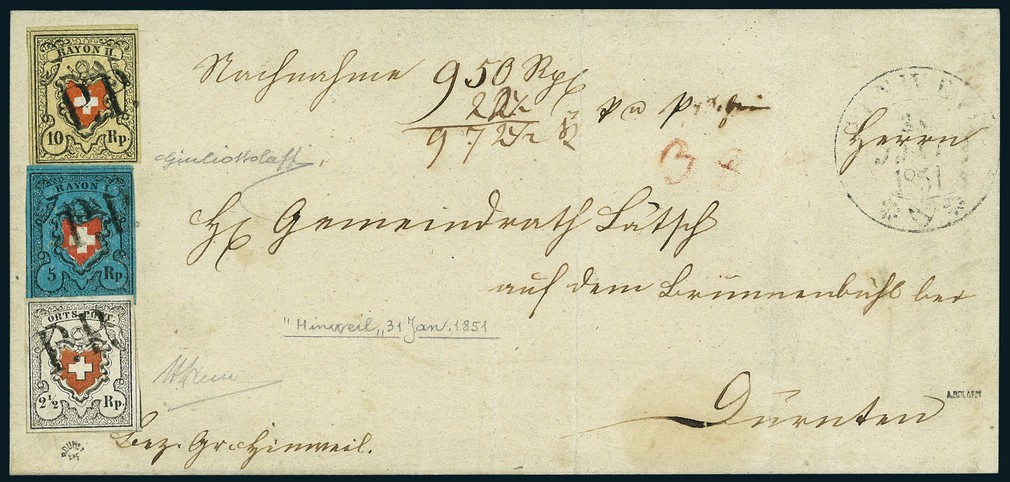 RAYON II.
10 Rp.
RAYON I.
5 Rp.
ORTS-POST
2 1/2 Rp.
PP
PP
PP
Nachnahme 950 Rp
22½
972½
Herrn
HINWEIL
31
1851
Hr Gemeindrath Lätsch
auf dem Brünnenbühl bei
"Hinweil" 31 Jan. 1851
Dürnten
Bez. Gr. Hinweil.